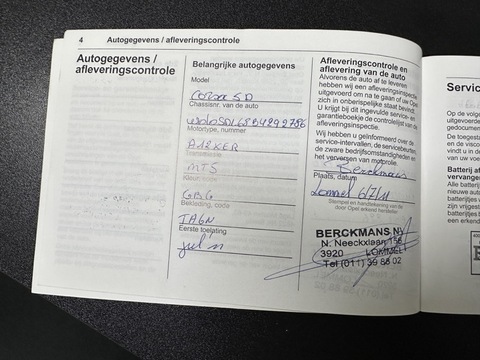 4 Autogegevens / afleveringscontrole
Autogegevens /
afleveringscontrole
Belangrijke autogegevens
Model
Corsa 5D
Chassisnr. van de auto
Motortype, nummer
A12XER
MT5
Kleur
GBG
Bekleding, code
TAGN
Eerste toelating
jul 11
Afleveringscontrole en
aflevering van de auto
Alvorens de auto af te leveren
hebben wij een afleveringsinspectie
uitgevoerd om na te gaan of uw Opel
zich in onberispelijke staat bevindt.
U krijgt bij dit ingevulde service- en
garantieboekje de controlelijst van de
afleveringsinspectie.
Wij hebben u geïnformeerd over de
service-intervallen, de servicebeurten,
de zware bedrijfsomstandigheden en
het verversen van motorolie.
Berckmans
Plaats, datum
Lommel 6/7/11
Stempel en handtekening van de
door Opel erkend hersteller
BERCKMANS NV
N. Neeckxlaan 156
3920 LOMMEL
Tel (011) 39 88 02
Servic
Op de volg
uitgevoerde
gedocumen
De toegesta
en de visco
vindt u in de
van deze a
Batterij af
vervangen
Alle batterij
nieuwe auto
batterijtjes
zijn vrijgest
batterijtjes
een erkend